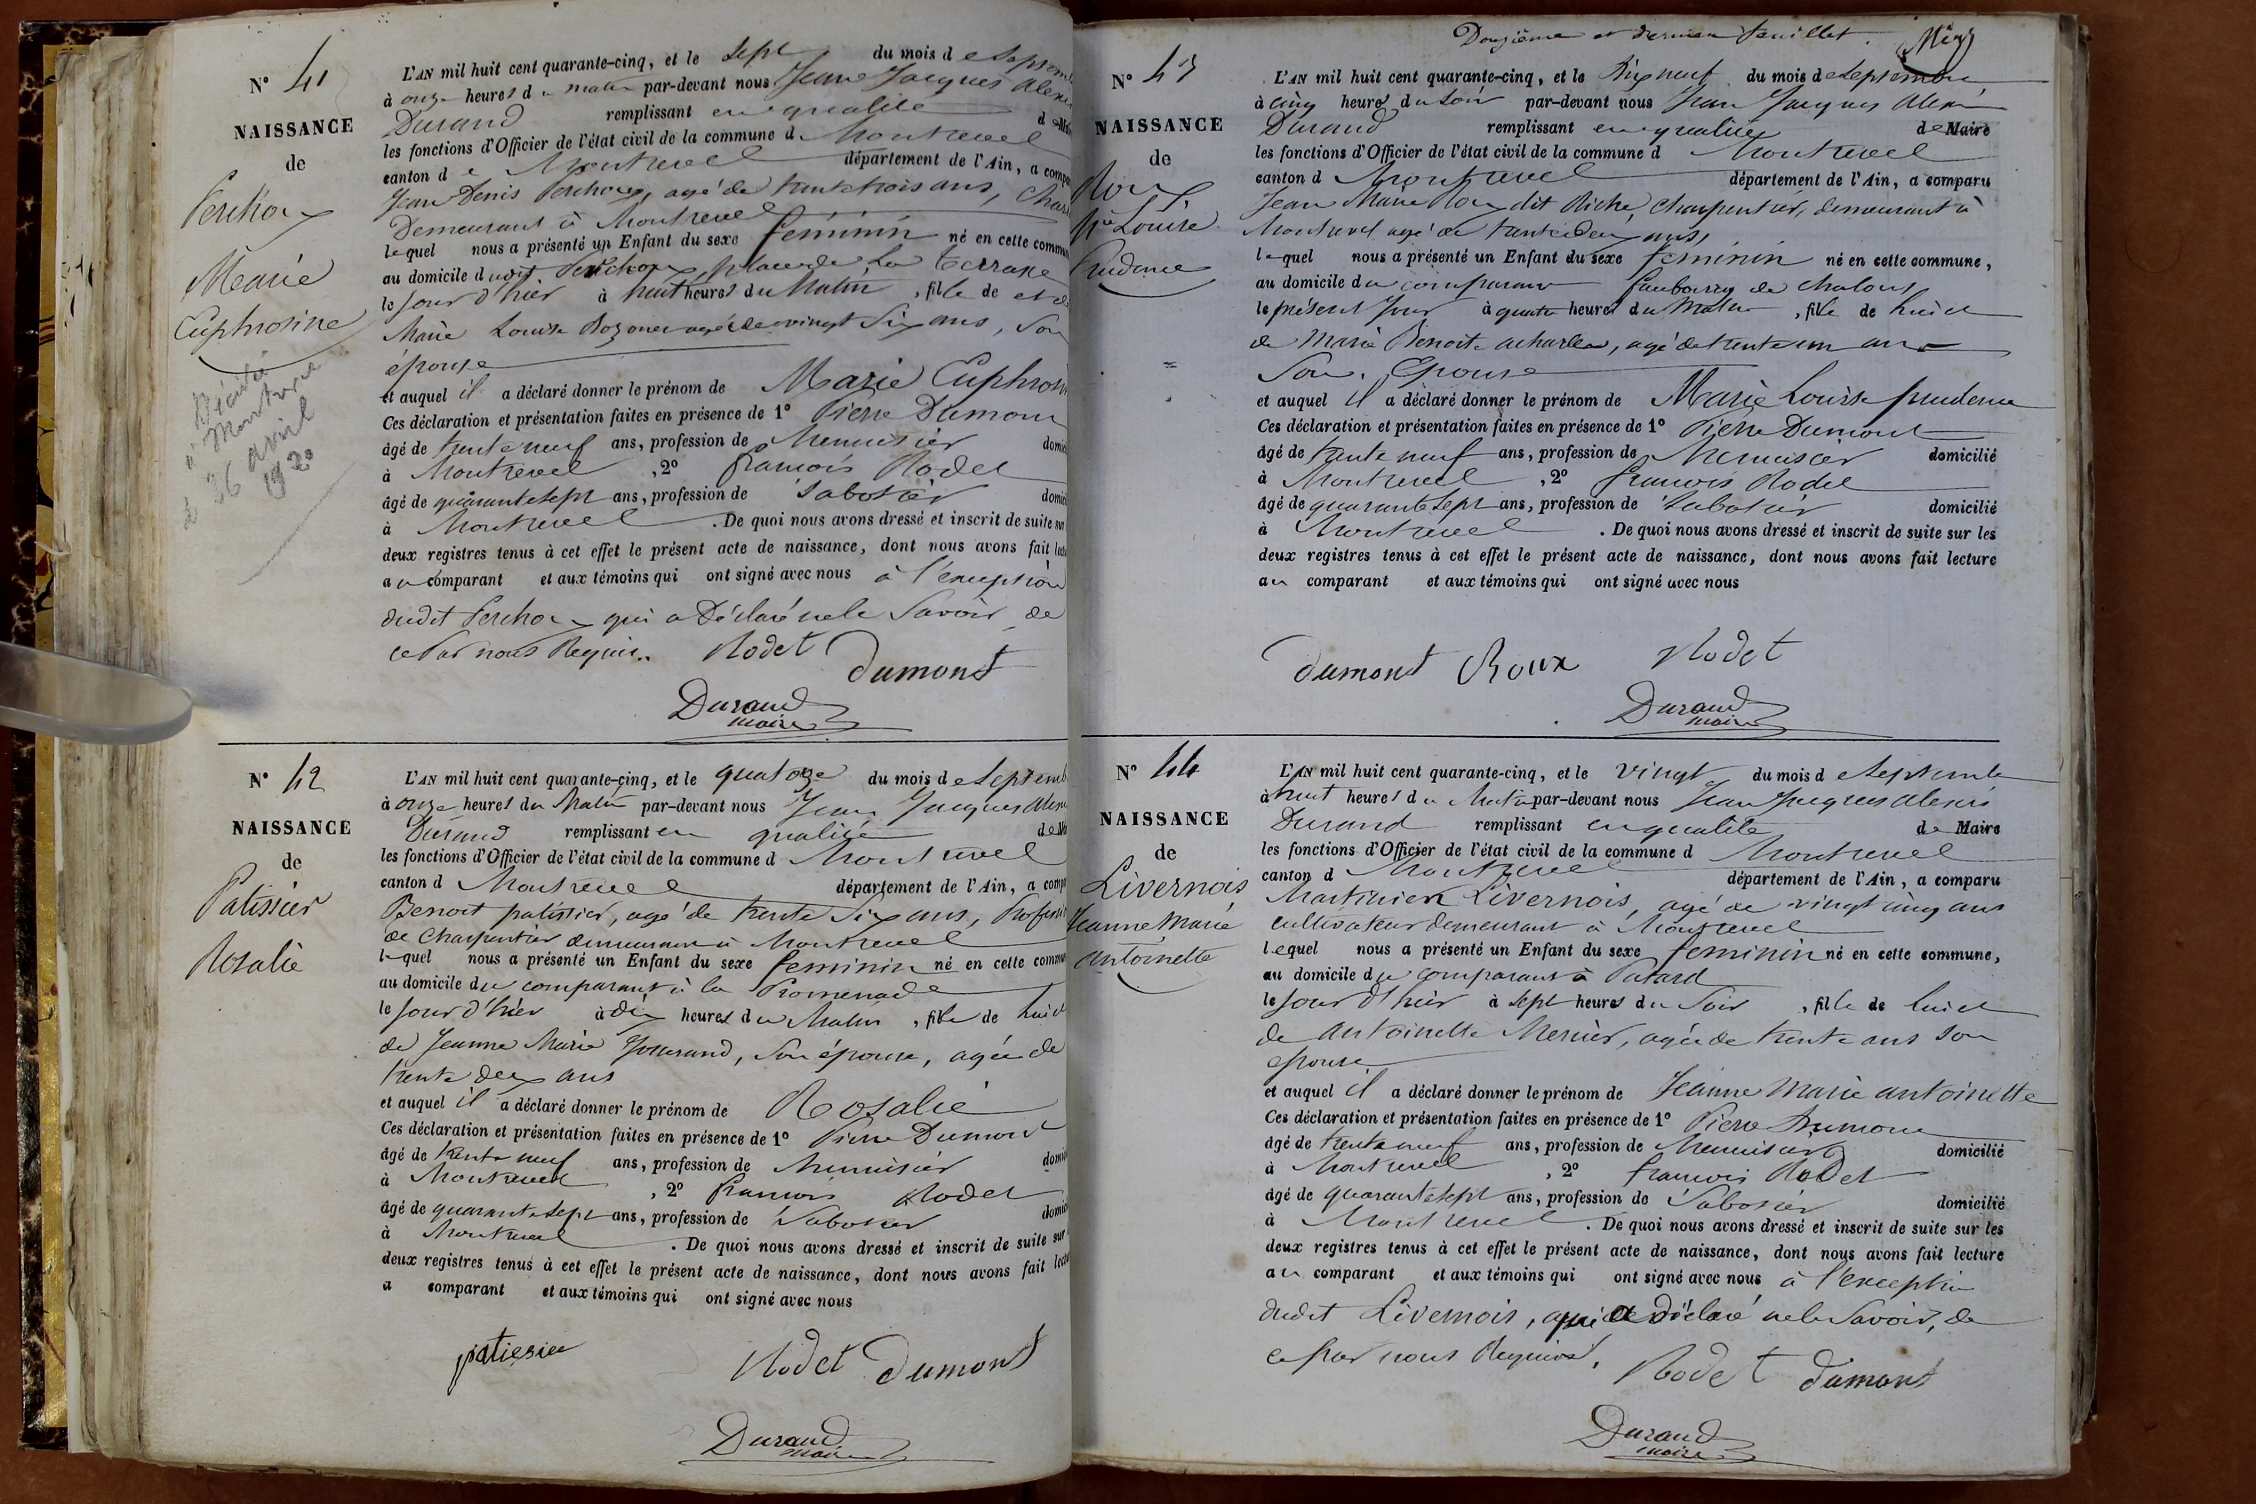 N° 41
NAISSANCE
de
Perchoux
Marie
Euphrosine
Décédée
à Montrevel
le 36 avril
1920
L'AN mil huit cent quarante-cinq, et le sept du mois de septemb
à onze heures du matin par-devant nous Jean Jacques Alexis
Durand remplissant en qualité de
les fonctions d'Officier de l'état civil de la commune de Montrevel
canton de Montrevel département de l'Ain, a compa
Jean Denis Perchoux, agé de trente trois ans,
Demeurant à Montrevel
lequel nous a présenté un Enfant du sexe féminin né en cette commu
au domicile dudit Perchoux, place de la terrasse
le jour d'hier à huit heures du Matin, fille de et de
Marie Louise agée de vingt six ans, son
épouse
et auquel il a déclaré donner le prénom de Marie Euphrosi
Ces déclaration et présentation faites en présence de 1° Pierre Dumont
âgé de trente neuf ans, profession de Menuisier domici
à Montrevel, 2° francois Rodet
âgé de quarante sept ans, profession de sabotier domici
à Montrevel. De quoi nous avons dressé et inscrit de suite sur
deux registres tenus à cet effet le présent acte de naissance, dont nous avons fait lectu
au comparant et aux témoins qui ont signé avec nous à l'exception
dudit Perchoux qui a Déclaré ne le Savoir, de
ce Par nous Requis.. Rodet
Dumont
Durand
maire
N° 42
NAISSANCE
de
Patissier
Rosalie
L'AN mil huit cent quarante-cinq, et le quatorze du mois de septemb
à onze heures du Matin par-devant nous Jean Jacques Alexi
Durand remplissant en qualité de Ma
les fonctions d'Officier de l'état civil de la commune d Montrevel
canton d Montrevel département de l'Ain, a compa
Benoit patissier, agé de trente six ans, Profession
de Charpentier demeurant à Montrevel
lequel nous a présenté un Enfant du sexe feminin né en cette commun
au domicile du comparant à la Promenade
le jour d'hier à dix heures du Matin, fille de luiet
de Jeanne Marie Josserand, Son épouse, agée de
trente deux ans
et auquel il a déclaré donner le prénom de Rosalie
Ces déclaration et présentation faites en présence de 1° Pierre Dumont
âgé de trente neuf ans, profession de Menuisier domici
à Montrevel, 2° francois Rodet
âgé de quarante sept ans, profession de Sabotier domici
à Montrevel. De quoi nous avons dressé et inscrit de suite sur
deux registres tenus à cet effet le présent acte de naissance, dont nous avons fait lectu
a comparant et aux témoins qui ont signé avec nous
patissier Rodet Dumont
Durand
maire
Douzième et dernier feuillet.
N° 43
NAISSANCE
de
Roux
Mie Louise
Prudence
L'AN mil huit cent quarante-cinq, et le Dix neuf du mois de septembre
à cinq heures du soir par-devant nous Jean Jacques Alexis
Durand remplissant en qualité de Maire
les fonctions d'Officier de l'état civil de la commune d Montrevel
canton d Montrevel département de l'Ain, a comparu
Jean Marie Roux dit Riche, Charpentier, demeurant à
Montrevel agé de trente deux ans,
lequel nous a présenté un Enfant du sexe feminin né en cette commune,
au domicile du comparant faubourg de chalons
le présent jour à quatre heures du Matin, fille de luiet
de Marie Benoite acharlea, agé de trente un ans
Son. Epouse
et auquel il a déclaré donner le prénom de Marie Louise prudence
Ces déclaration et présentation faites en présence de 1° Pierre Dumont
âgé de trente neuf ans, profession de Menuisier domicilié
à Montrevel, 2° francois Rodet
âgé de quarante sept ans, profession de Sabotier domicilié
à Montrevel. De quoi nous avons dressé et inscrit de suite sur les
deux registres tenus à cet effet le présent acte de naissance, dont nous avons fait lecture
au comparant et aux témoins qui ont signé avec nous
Dumont Roux Rodet
Durand
maire
N° 44
NAISSANCE
de
Livernois
Jeanne Marie
antoinette
L'AN mil huit cent quarante-cinq, et le vingt du mois de septembre
à huit heures du Matin par-devant nous Jean Jacques Alexis
Durand remplissant en qualité de Maire
les fonctions d'Officier de l'état civil de la commune d Montrevel
canton d Montrevel département de l'Ain, a comparu
Martinien Livernois, agé de vingt cinq ans
cultivateur demeurant à Montrevel
lequel nous a présenté un Enfant du sexe feminin né en cette commune,
au domicile du comparant à Patard
le jour d'hier à sept heures du Soir, fille de luiet
de antoinette Mercier, agée de trente ans son
epouse
et auquel il a déclaré donner le prénom de Jeanne Marie antoinette
Ces déclaration et présentation faites en présence de 1° Pierre Dumont
âgé de trente neuf ans, profession de Menuisier domicilié
à Montrevel, 2° francois Rodet
âgé de quarante sept ans, profession de Sabotier domicilié
à Montrevel. De quoi nous avons dressé et inscrit de suite sur les
deux registres tenus à cet effet le présent acte de naissance, dont nous avons fait lecture
au comparant et aux témoins qui ont signé avec nous à l'exception
dudit Livernois, qui a déclaré ne le Savoir, de
ce par nous Requis.
Rodet Dumont
Durand
maire